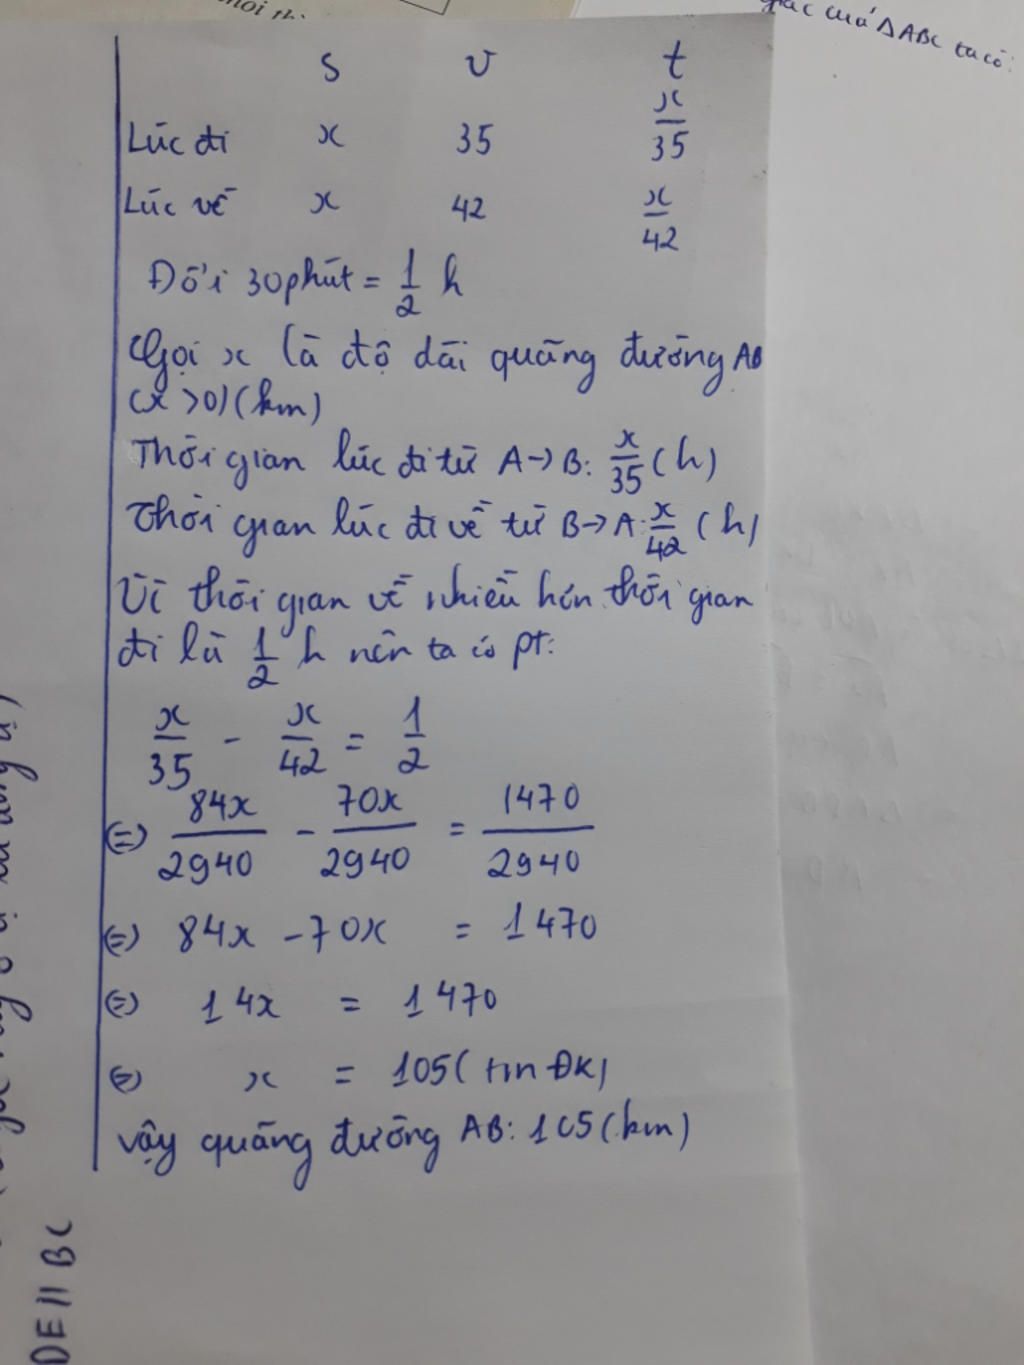 giác của ΔABC ta có:
S v t
Lúc đi x 35 x/35
Lúc về x 42 x/42
Đổi 30 phút = 1/2 h
Gọi x là độ dài quãng đường AB
(x >0)(km)
Thời gian lúc đi từ A→B: x/35 (h)
Thời gian lúc đi về từ B→A: x/42 (h)
Vì thời gian về nhiều hơn thời gian
đi là 1/2 h nên ta có pt:
x/35 - x/42 = 1/2
⇔ 84x/2940 - 70x/2940 = 1470/2940
⇔ 84x - 70x = 1470
⇔ 14x = 1470
⇔ x = 105 (tm ĐK)
Vậy quãng đường AB: 105 (km)
DE // BC